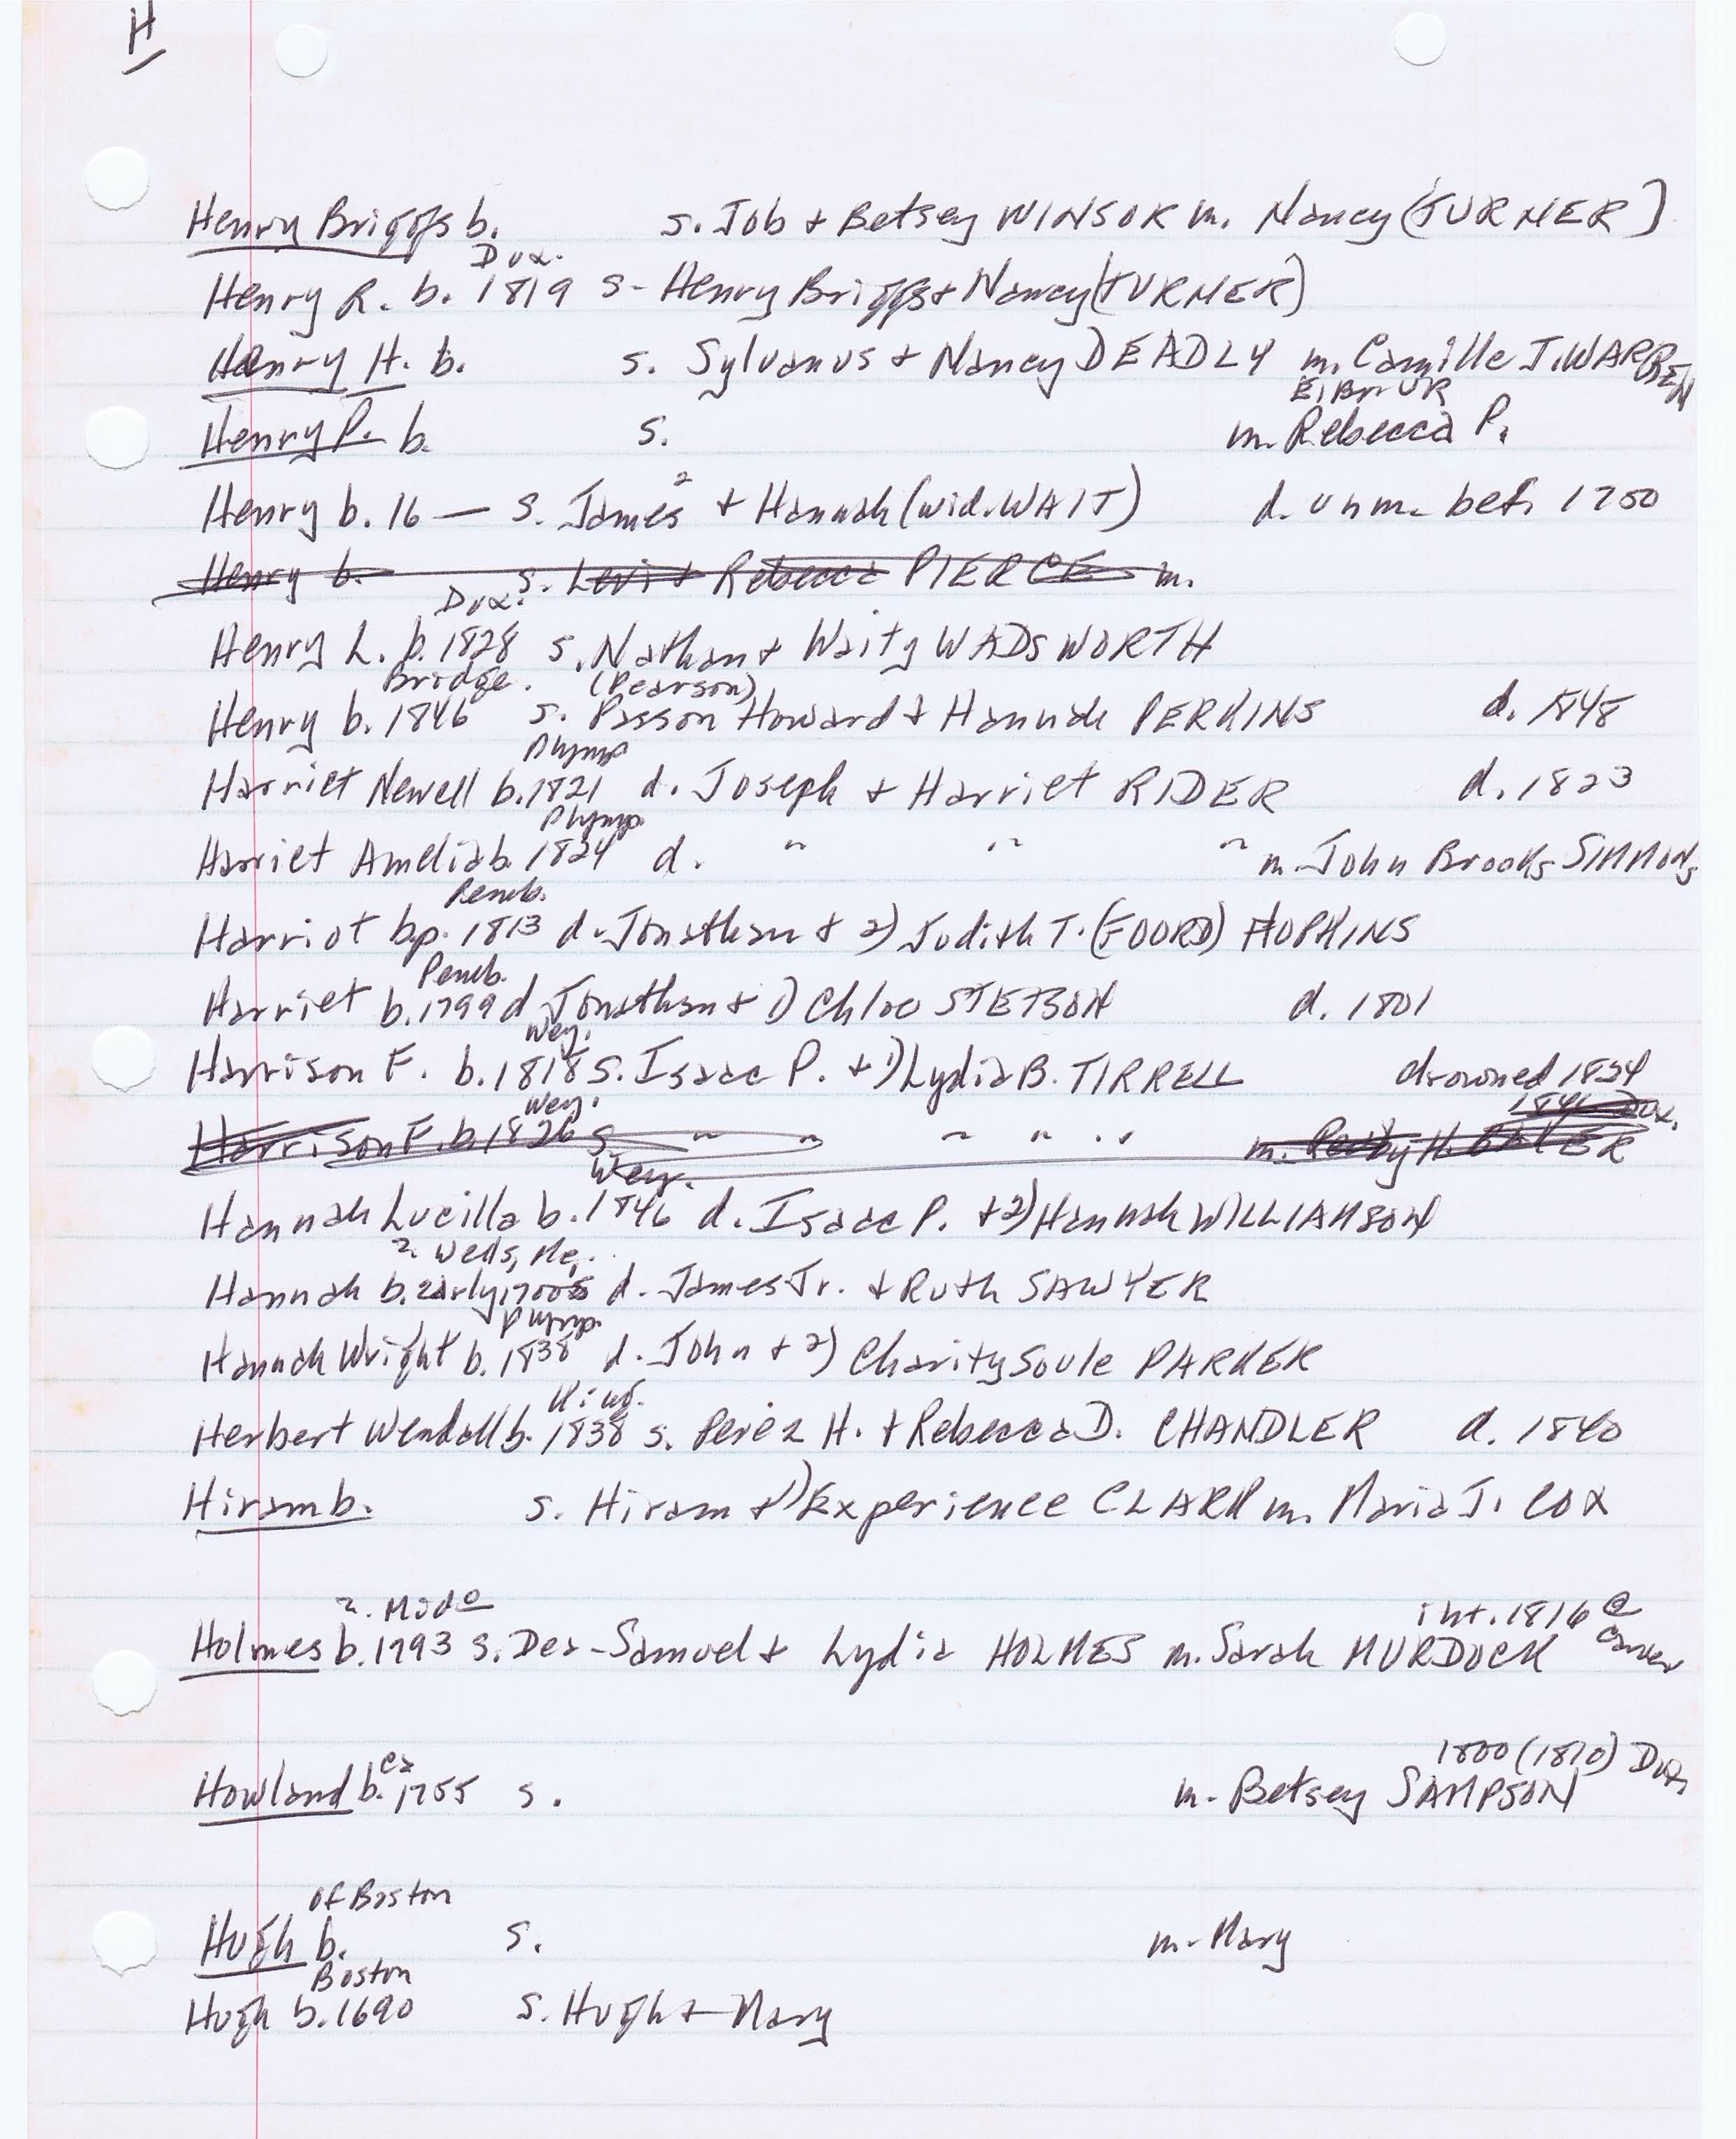 H
Henry Briggs b. s. Job + Betsey WINSOR m. Nancy (TURNER)
Dux.
Henry R. b. 1819 s- Henry Briggs + Nancy (TURNER)
Henry H. b. s. Sylvanus + Nancy DEADLY m. Camille J. WARREN
E. Br.
Henry P. b. s. m. Rebecca P.
Henry b. 16— s. James² + Hannah (wid. WAIT) d. unm. bef. 1750
Henry b. s. Levi + Rebecca PIERCE m.
Dux.
Henry L. b. 1828 s. Nathan + Waity WADSWORTH
Bridge. (Pearson)
Henry b. 1846 s. Passon Howard + Hannah PERKINS d. 1848
Plymp
Harriet Newell b. 1821 d. Joseph + Harriet RIDER d. 1823
Plymp
Harriet Amelia b. 1824 d. " " " m. John Brooks SIMMONS
Pemb.
Harriot bp. 1813 d. Jonathan + 2) Judith T. (FOORD) HOPKINS
Pemb.
Harriet b. 1799 d Jonathan + 1) Chloe STETSON d. 1801
Wey.
Harrison F. b. 1818 s. Isaac P. + 1) Lydia B. TIRRELL drowned 1824
Wey. 1846 Dux.
Harrison F. b. 1826 s " " " " " m. H.
Wey.
Hannah Lucilla b. 1846 d. Isaac P. + 2) Hannah WILLIAMSON
2. Wells, Me.
Hannah b. early 1700s d. James Jr. + Ruth SAWYER
Plymp.
Hannah Wright b. 1838 d. John + 2) Charity Soule PARKER
King.
Herbert Wendall b. 1838 s. Perez H. + Rebecca D. CHANDLER d. 1840
Hiram b. s. Hiram + 1) Experience CLARK m. Maria J. COX
2. Midd int. 1816 @ Carver
Holmes b. 1793 s. Dea-Samuel + Lydia HOLMES m. Sarah MURDOCK
ca 1800 (1810) Dux.
Howland b. 1755 s. m. Betsey SAMPSON
of Boston
Hugh b. s. m. Mary
Boston
Hugh b. 1690 s. Hugh + Mary